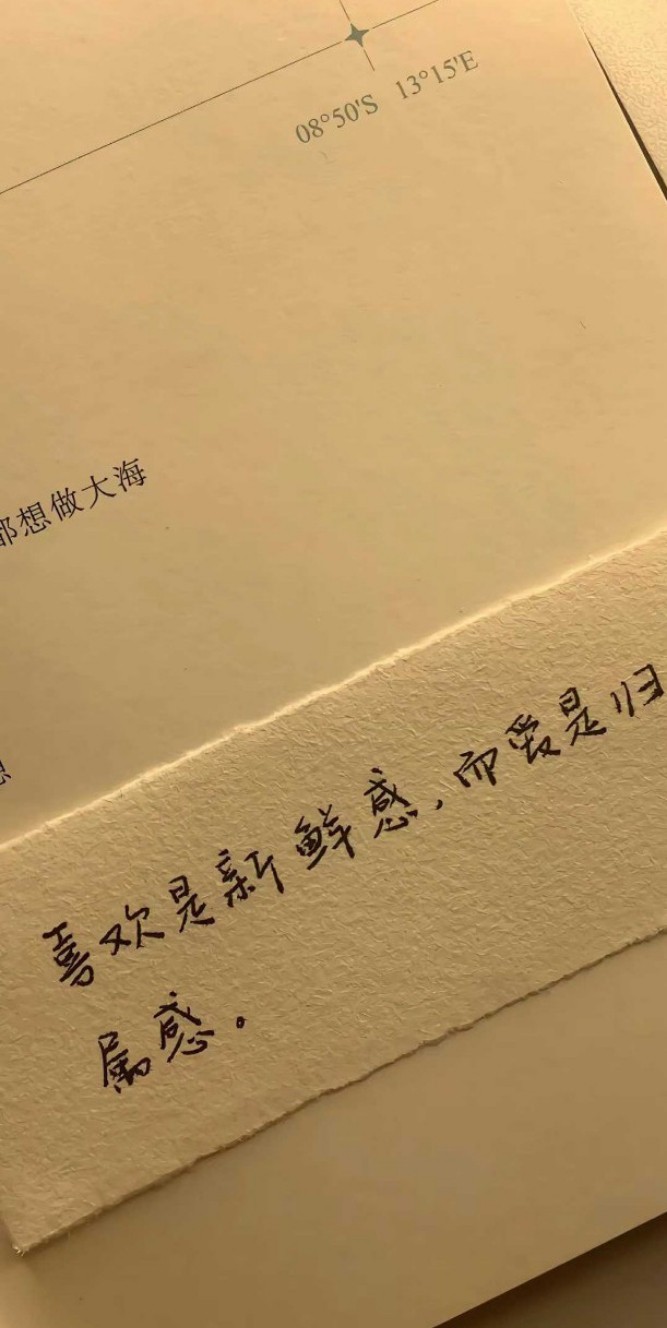 08°50'S 13°15'E
都想做大海
想
喜欢是新鲜感，而爱是归
属感。